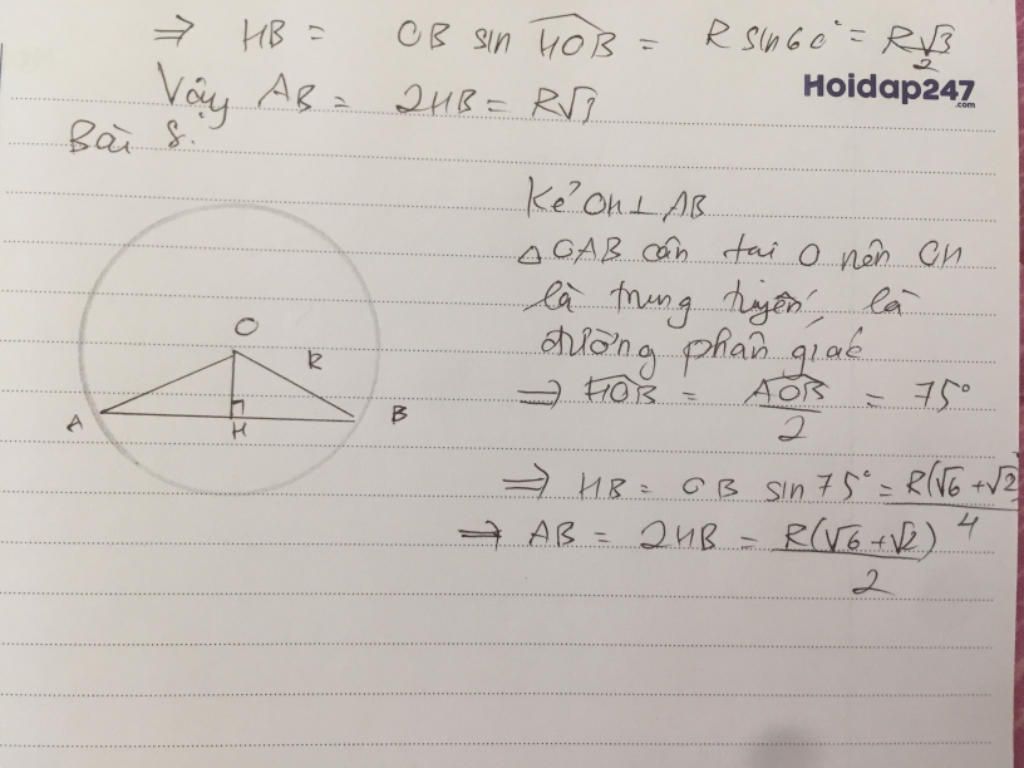 ⇒ HB = OB sin HOB = R sin60° = R√3/2
Vậy AB = 2HB = R√3
Hoidap247
.com
Bài 8:
Kẻ OH ⊥ AB
△OAB cân tại O nên OH
là trung tuyến, là
đường phân giác
⇒ HOB = AOB/2 = 75°
⇒ HB = OB sin75° = R(√6+√2)/4
⇒ AB = 2HB = R(√6+√2)/2
O
R
A
H
B